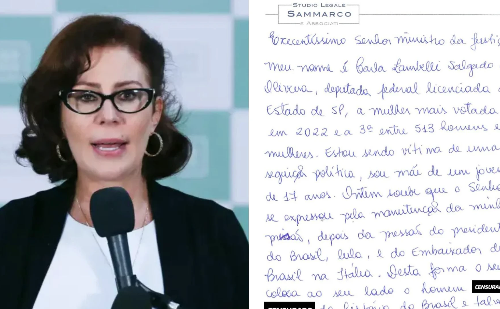 STUDIO LEGALE
SAMMARCO
E ASSOCIATI
Excelentíssimo Senhor ministro da Justiç
Meu nome é Carla Zambelli Salgado
Oliveira, deputada federal licenciada
Estado de SP, a mulher mais votada
em 2022 e a 3ª entre 513 homens e
mulheres. Estou sendo vítima de uma
seguição política, sou mãe de um jovem
de 17 anos. Ontem soube que o Senhor
se expressou pela manutenção da minh
prisão, depois da pressão do presidente
do Brasil, lula, e do Embaixador d
Brasil na Itália. Desta forma o se
coloca ao seu lado o homem CENSURADO
CENSURADO da história do Brasil e talve